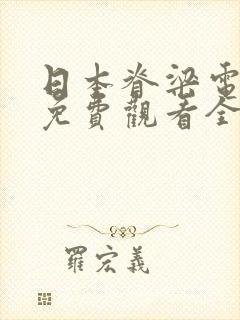 日本脊梁電
免費觀看全
羅宏義